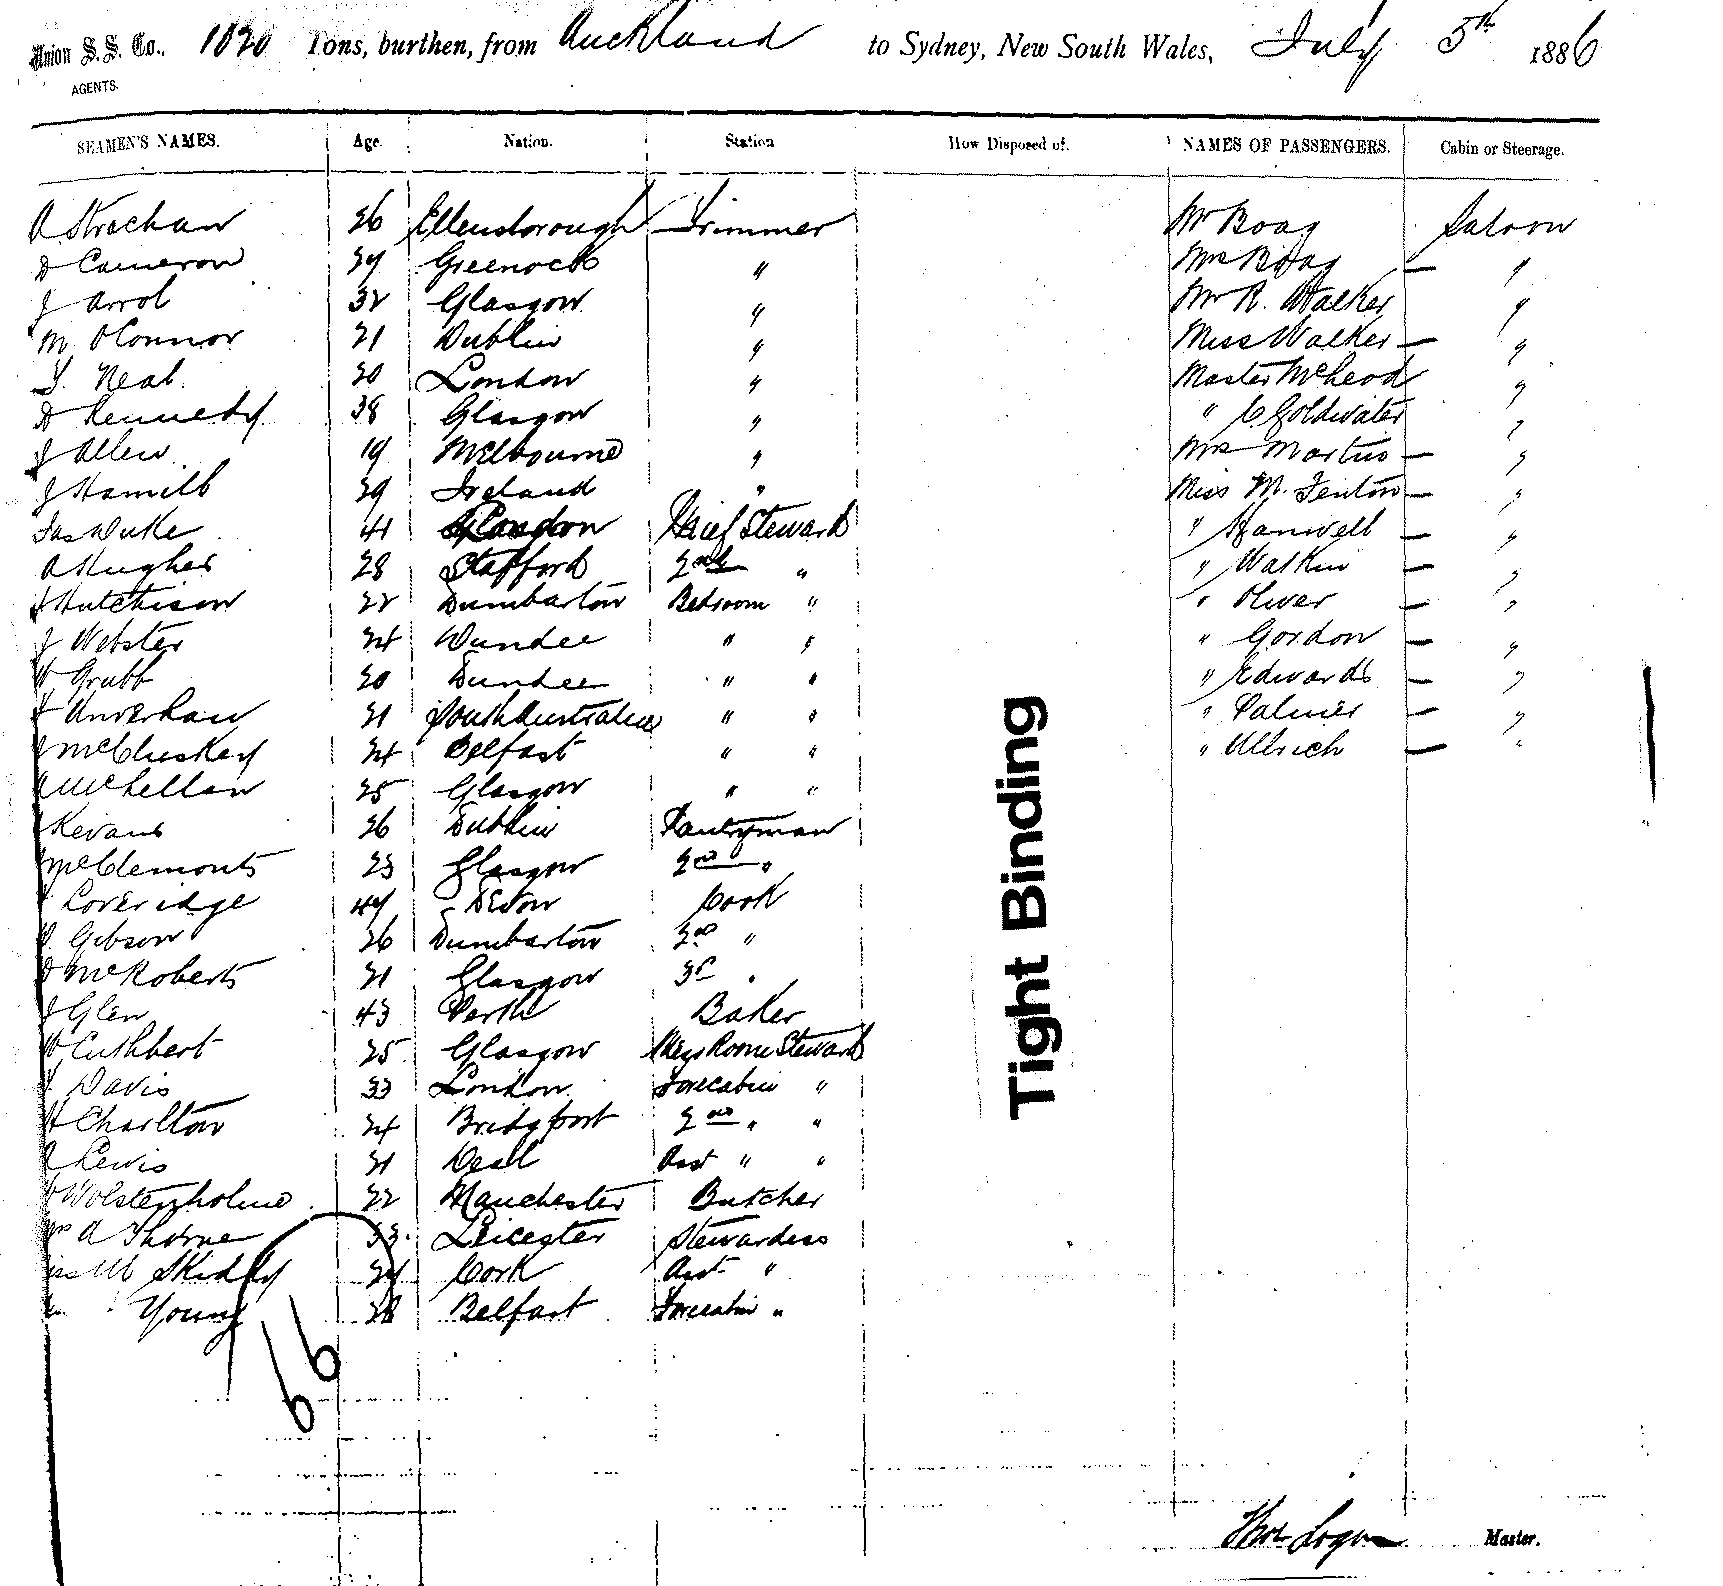 Union S.S. Co., 1030 Tons, burthen, from Auckland to Sydney, New South Wales, July 5th 1886
AGENTS.
SEAMEN'S NAMES. Age. Nation. Station How Disposed of. NAMES OF PASSENGERS. Cabin or Steerage.
A Strachan 26 Ellensborough Trimmer Mr Boag Saloon
D Cameron 29 Greenock " Mrs Boag — "
J Arrol 32 Glasgow " Mr R. Walker "
M OConnor 21 Dublin " Miss Walker — "
T. Neal 20 London " Master McLeod "
D Kennedy 38 Glasgow " " C Goldwater "
J Allen 19 Melbourne " Mrs Martin — "
J Hamill 29 Ireland " Miss M. Fenton — "
Jas Duke 41 London Chief Steward " Hanwell — "
A Hughes 28 Stafford 2nd " " Watkin — "
Hutchison 22 Dumbarton Bedroom " " Oliver — "
J Webster 24 Dundee " " " Gordon — "
Grubb 20 Dundee " " " Edwards — "
21 South Australia " " " Palmer — "
J McCluskey 24 Belfast " " " Ullrich — "
A McLellan 25 Glasgow " "
J Kevans 26 Dublin Pantryman
J McClemonts 23 Glasgow 2nd "
Loveridge 49 Devon Cook
Gibson 26 Dumbarton 2nd "
D McRoberts 21 Glasgow 3rd "
J Glen 43 Perth Baker
W Cuthbert 25 Glasgow Mess Room Steward
Davis 33 London Forecabin "
H Charlton 24 Bridgport 2nd " "
Lewis 21 Deal Asst " "
Wolstenholme 22 Manchester Butcher
A Thorne 33 Leicester Stewardess
M Skiddy 29 Cork Asst "
Young 28 Belfast Forecabin "
66
Tight Binding
Thos Logan Master.